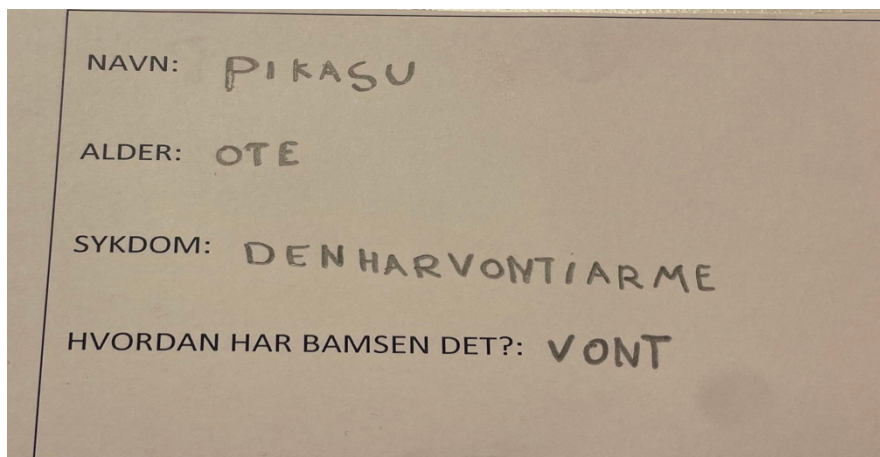 NAVN: PIKASU
ALDER: OTE
SYKDOM: DENHARVONTIARME
HVORDAN HAR BAMSEN DET?: VONT